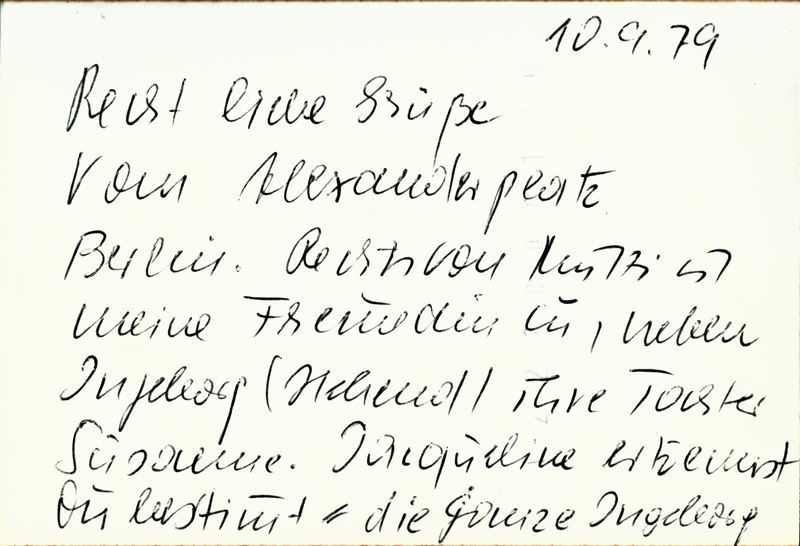 10.9.79
Recht liebe Grüße
Vom Alexanderplatz
Berlin. Rechts von Mutti ist
meine Freundin U, neben
Ingeborg (stehend) ihre Tochter
Susanne. Jacqueline erkennst
Du bestimt = die ganze Ingeborg